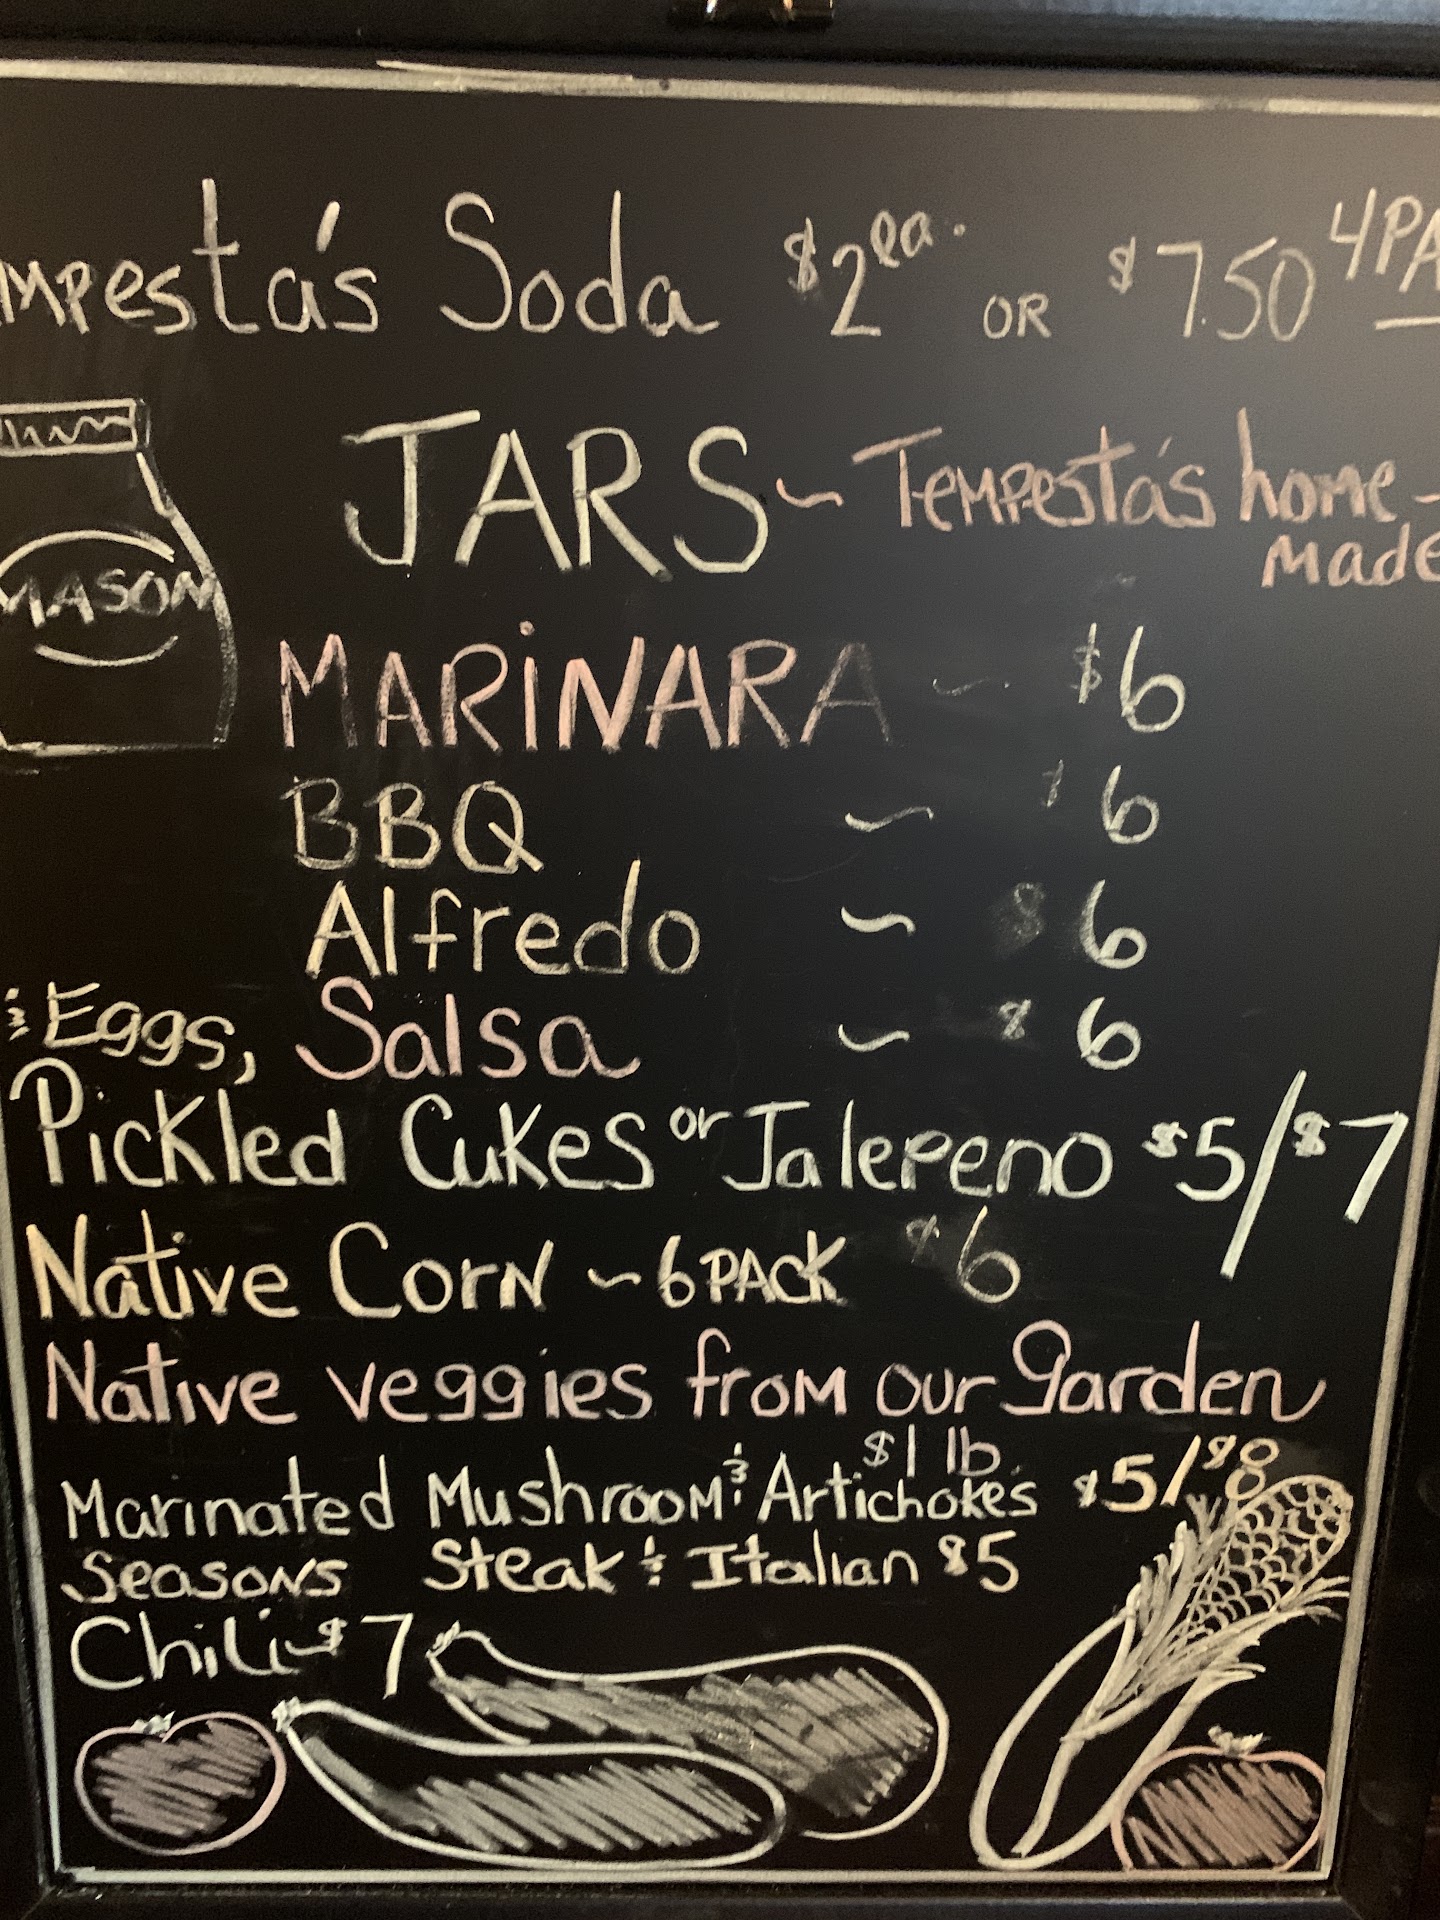 mpesta's Soda $2 ea. OR $7.50 4PA
JARS ~ Tempesta's home-
made
MASON
MARINARA ~ $6
BBQ ~ $6
Alfredo ~ $6
Salsa ~ $6
& Eggs,
Pickled Cukes or Jalepeno $5/$7
Native Corn ~ 6 PACK $6
Native veggies from our garden
$1 lb.
Marinated Mushroom & Artichokes $5/$8
Seasons Steak & Italian $5
Chili $7